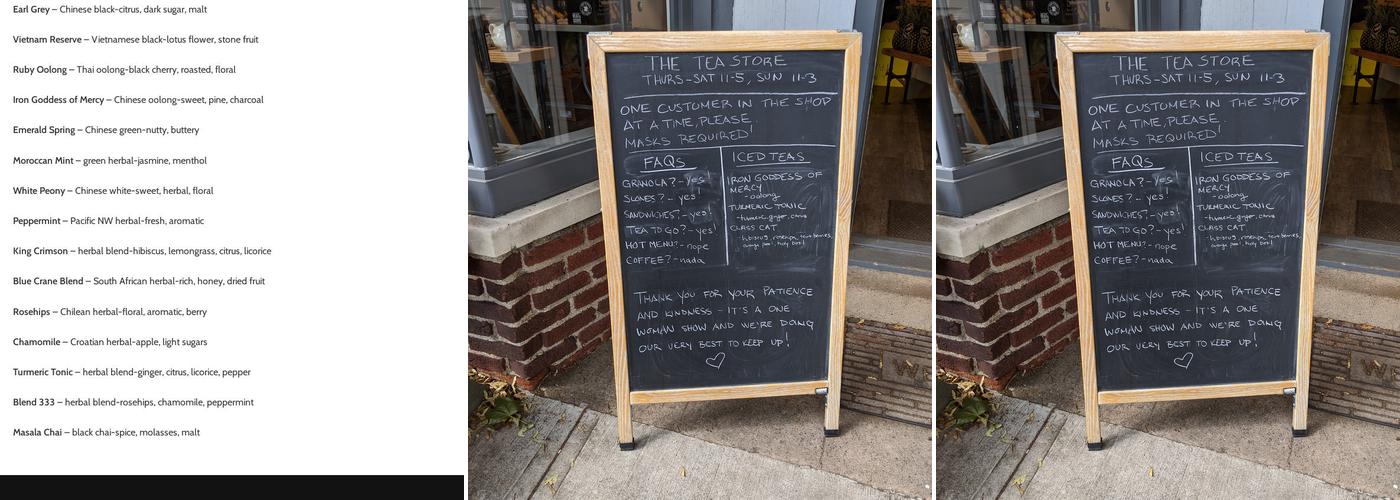 Earl Grey – Chinese black-citrus, dark sugar, malt
Vietnam Reserve – Vietnamese black-lotus flower, stone fruit
Ruby Oolong – Thai oolong-black cherry, roasted, floral
Iron Goddess of Mercy – Chinese oolong-sweet, pine, charcoal
Emerald Spring – Chinese green-nutty, buttery
Moroccan Mint – green herbal-jasmine, menthol
White Peony – Chinese white-sweet, herbal, floral
Peppermint – Pacific NW herbal-fresh, aromatic
King Crimson – herbal blend-hibiscus, lemongrass, citrus, licorice
Blue Crane Blend – South African herbal-rich, honey, dried fruit
Rosehips – Chilean herbal-floral, aromatic, berry
Chamomile – Croatian herbal-apple, light sugars
Turmeric Tonic – herbal blend-ginger, citrus, licorice, pepper
Blend 333 – herbal blend-rosehips, chamomile, peppermint
Masala Chai – black chai-spice, molasses, malt
THE TEA STORE
THURS-SAT 11-5, SUN 11-3
ONE CUSTOMER IN THE SHOP
AT A TIME, PLEASE.
MASKS REQUIRED!
FAQs
GRANOLA? - yes!
SCONES? - yes!
SANDWICHES? - yes!
TEA TO GO? - yes!
HOT MENU? - nope
COFFEE? - nada
ICED TEAS
IRON GODDESS OF
MERCY
- oolong
TURMERIC TONIC
- turmeric, ginger, citrus
CLASS CAT
- hibiscus, rosehips,
orange peel, holy basil
THANK YOU FOR YOUR PATIENCE
AND KINDNESS - IT'S A ONE
WOMAN SHOW AND WE'RE DOING
OUR VERY BEST TO KEEP UP!
THE TEA STORE
THURS-SAT 11-5, SUN 11-3
ONE CUSTOMER IN THE SHOP
AT A TIME, PLEASE.
MASKS REQUIRED!
FAQs
GRANOLA? - yes!
SCONES? - yes!
SANDWICHES? - yes!
TEA TO GO? - yes!
HOT MENU? - nope
COFFEE? - nada
ICED TEAS
IRON GODDESS OF
MERCY
- oolong
TURMERIC TONIC
- turmeric, ginger, citrus
CLASS CAT
- hibiscus, rosehips,
orange peel, holy basil
THANK YOU FOR YOUR PATIENCE
AND KINDNESS - IT'S A ONE
WOMAN SHOW AND WE'RE DOING
OUR VERY BEST TO KEEP UP!